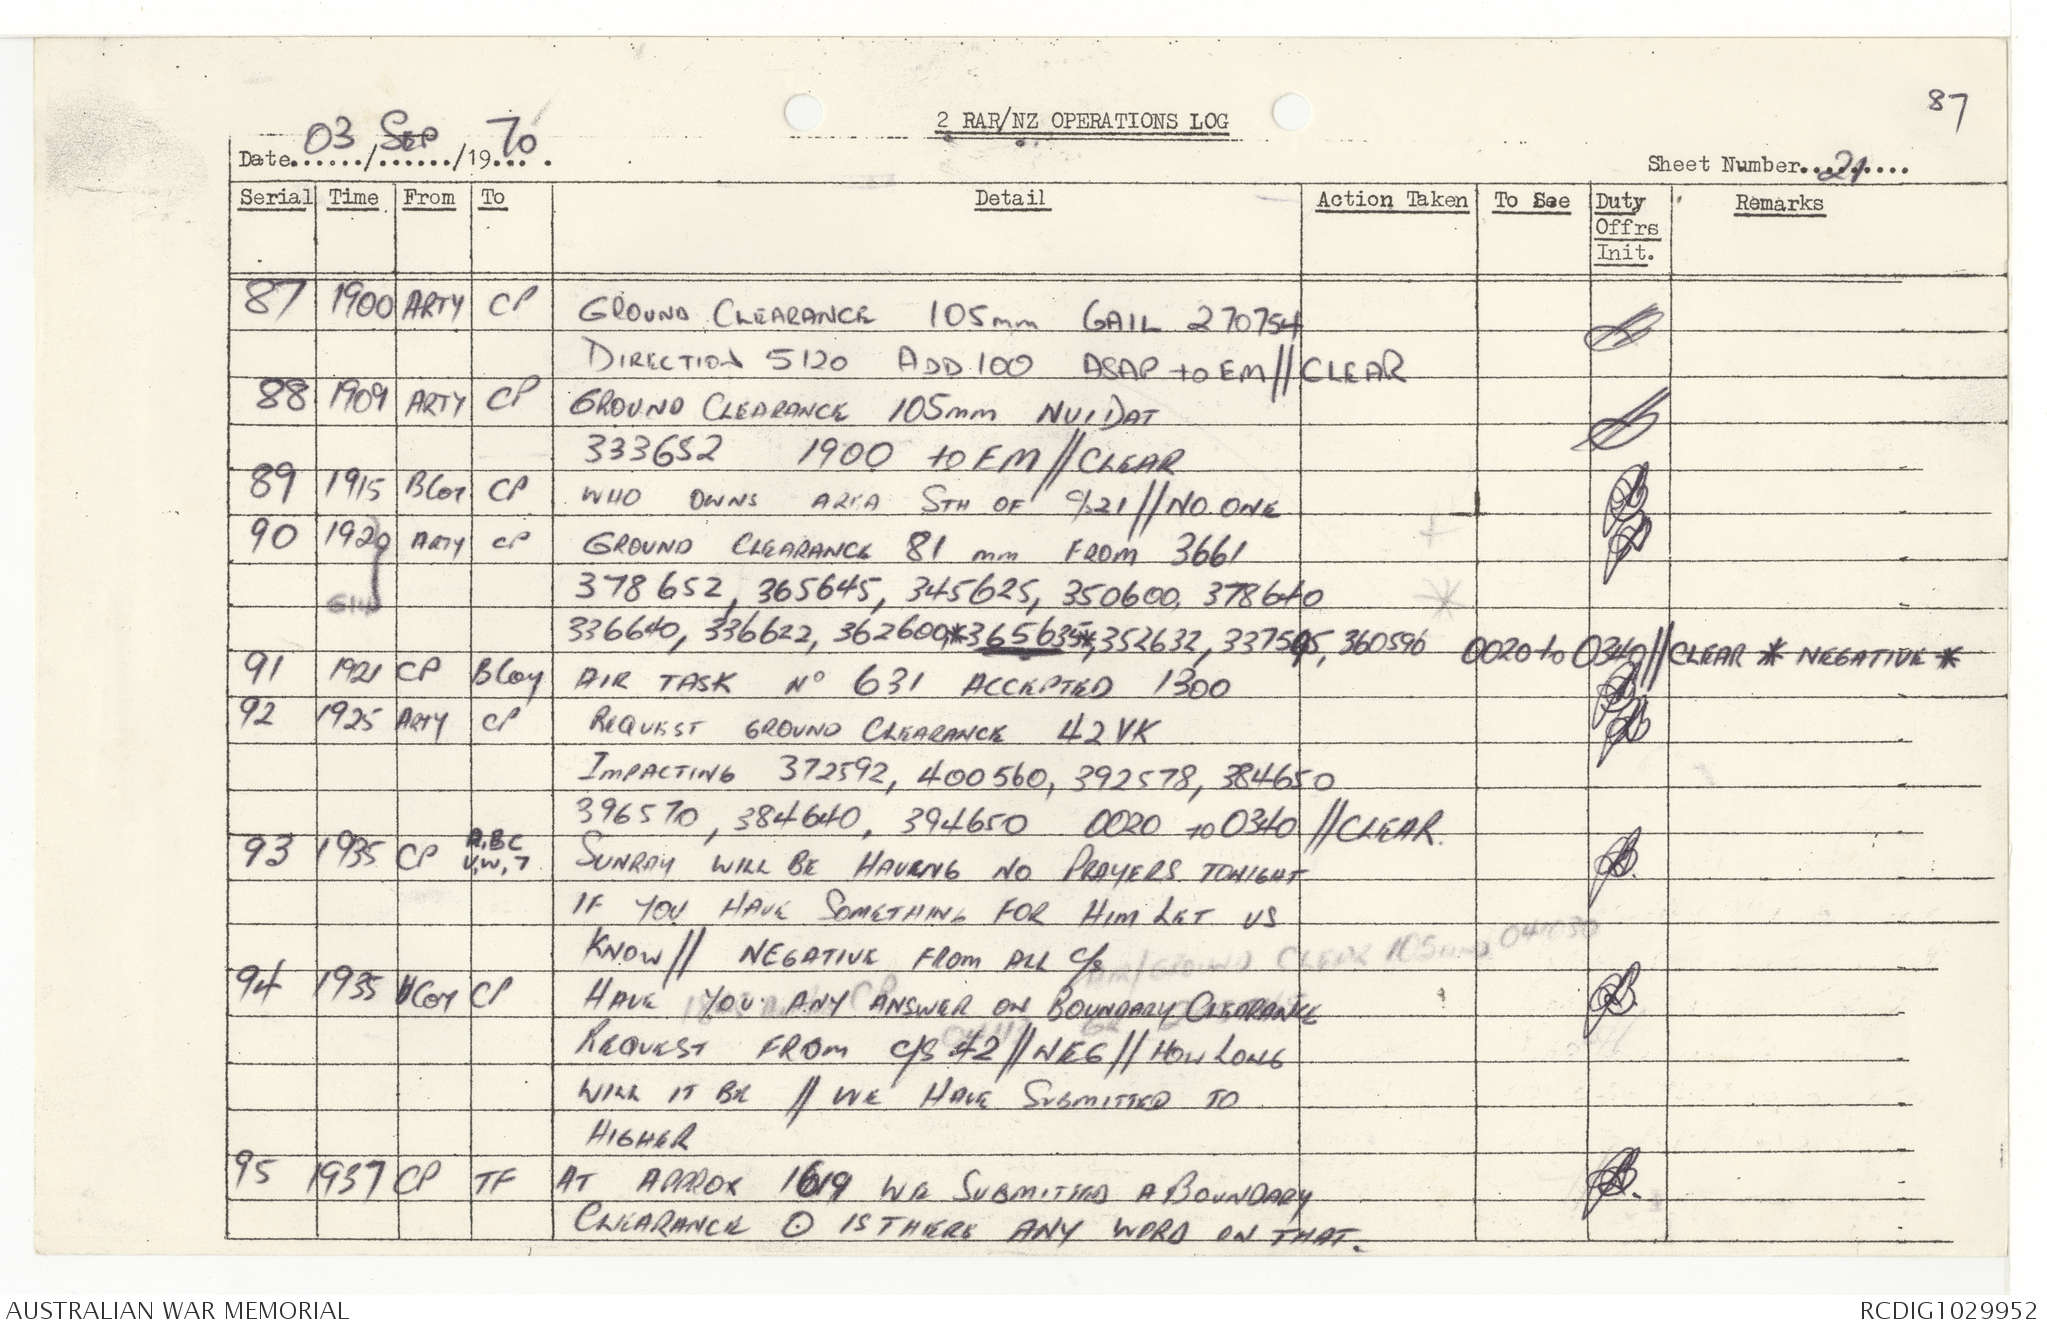 87
2 RAR/NZ OPERATIONS LOG
Date 03 / Sep /1970
Sheet Number 21
Serial Time From To Detail Action Taken To See Duty Offrs Init. Remarks
87 1900 ARTY CP GROUND CLEARANCE 105mm GAIL 270754
DIRECTION 5120 ADD 100 ASAP to EM//CLEAR
88 1909 ARTY CP GROUND CLEARANCE 105mm NUI DAT
333652 1900 to EM//CLEAR
89 1915 BCoy CP WHO OWNS AREA STH OF C/S21//NO ONE
90 1920 ARTY CP GROUND CLEARANCE 81 mm FROM 3661
378652, 365645, 345625, 350600, 378640
336640, 336622, 362600,*365635*,352632, 337595, 360596 0020 to 0340//CLEAR * NEGATIVE *
91 1921 CP BCoy AIR TASK No 631 ACCEPTED 1300
92 1925 ARTY CP REQUEST GROUND CLEARANCE 42 VK
IMPACTING 372592, 400560, 392578, 384650
396570, 384640, 394650 0020 to 0340 //CLEAR.
93 1935 CP A,BC V,W,7 SUNRAY WILL BE HAVING NO PRAYERS TONIGHT
IF YOU HAVE SOMETHING FOR HIM LET US
KNOW// NEGATIVE FROM ALL C/S
94 1935 VCoy CP HAVE YOU ANY ANSWER ON BOUNDARY CLEARANCE
REQUEST FROM C/S 42//NEG//HOW LONG
WILL IT BE // WE HAVE SUBMITTED TO
HIGHER
95 1937 CP TF AT APPROX 1619 WE SUBMITTED A BOUNDARY
CLEARANCE ⊙ IS THERE ANY WORD ON THAT.
AUSTRALIAN WAR MEMORIAL
RCDIG1029952